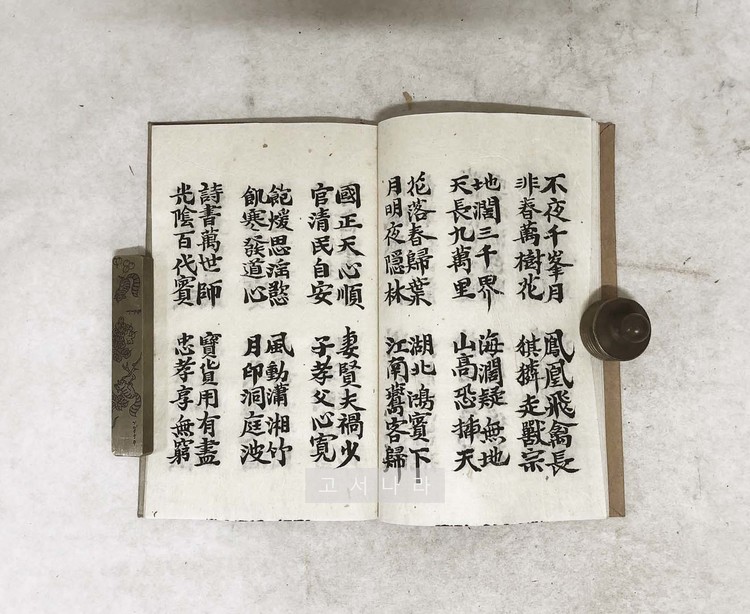 不夜千峯月
非春萬樹花
鳳凰飛禽長
猉獜走獸宗
地濶三千界
天長九萬里
海濶疑無地
山高恐揷天
花落春歸葉
月明夜隱林
湖北鴻賓下
江南鶯客歸
國正天心順
官清民自安
妻賢夫禍少
子孝父心寬
飽煖思淫慾
飢寒發道心
風動瀟湘竹
月印洞庭波
詩書萬世師
光陰百代賓
寶貨用有盡
忠孝享無窮
고서나라